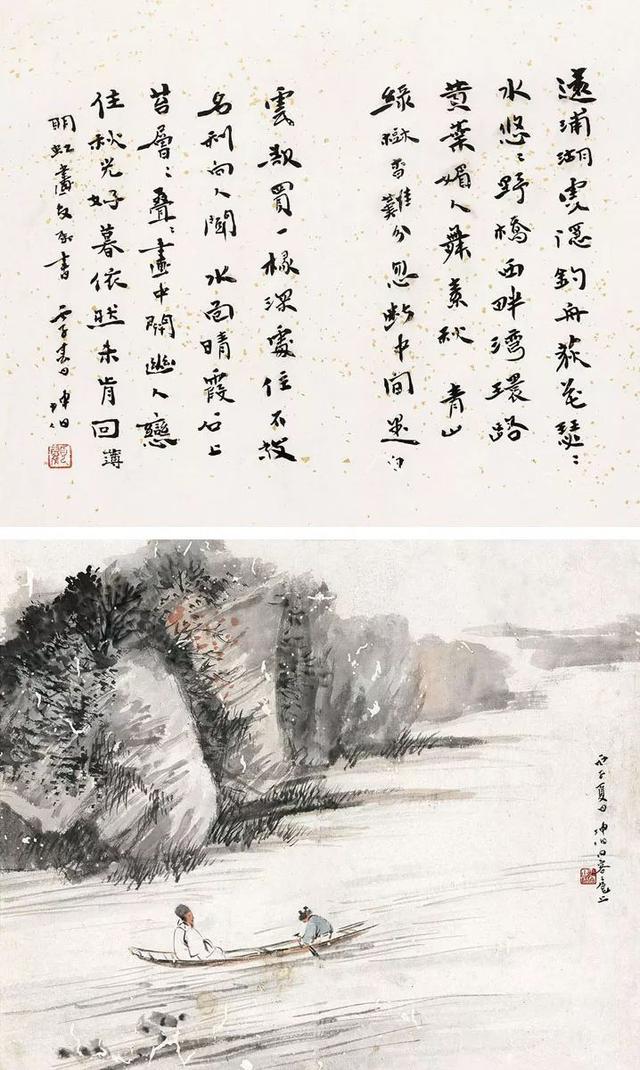 遠浦湖隱釣舟荻花瑟〻
水悠〻野橋西畔灣環路
黃葉媚人舞素秋 青山
綠樹杳難分忽斷中間是白
雲欲買一椽深處住不教
名利向人聞 水面晴霞石上
苔層〻疊〻畫中開幽人戀
住秋光好暮依然未肯回薄
明虹畫友書 丙子春日 坤伯
丙子夏日坤伯